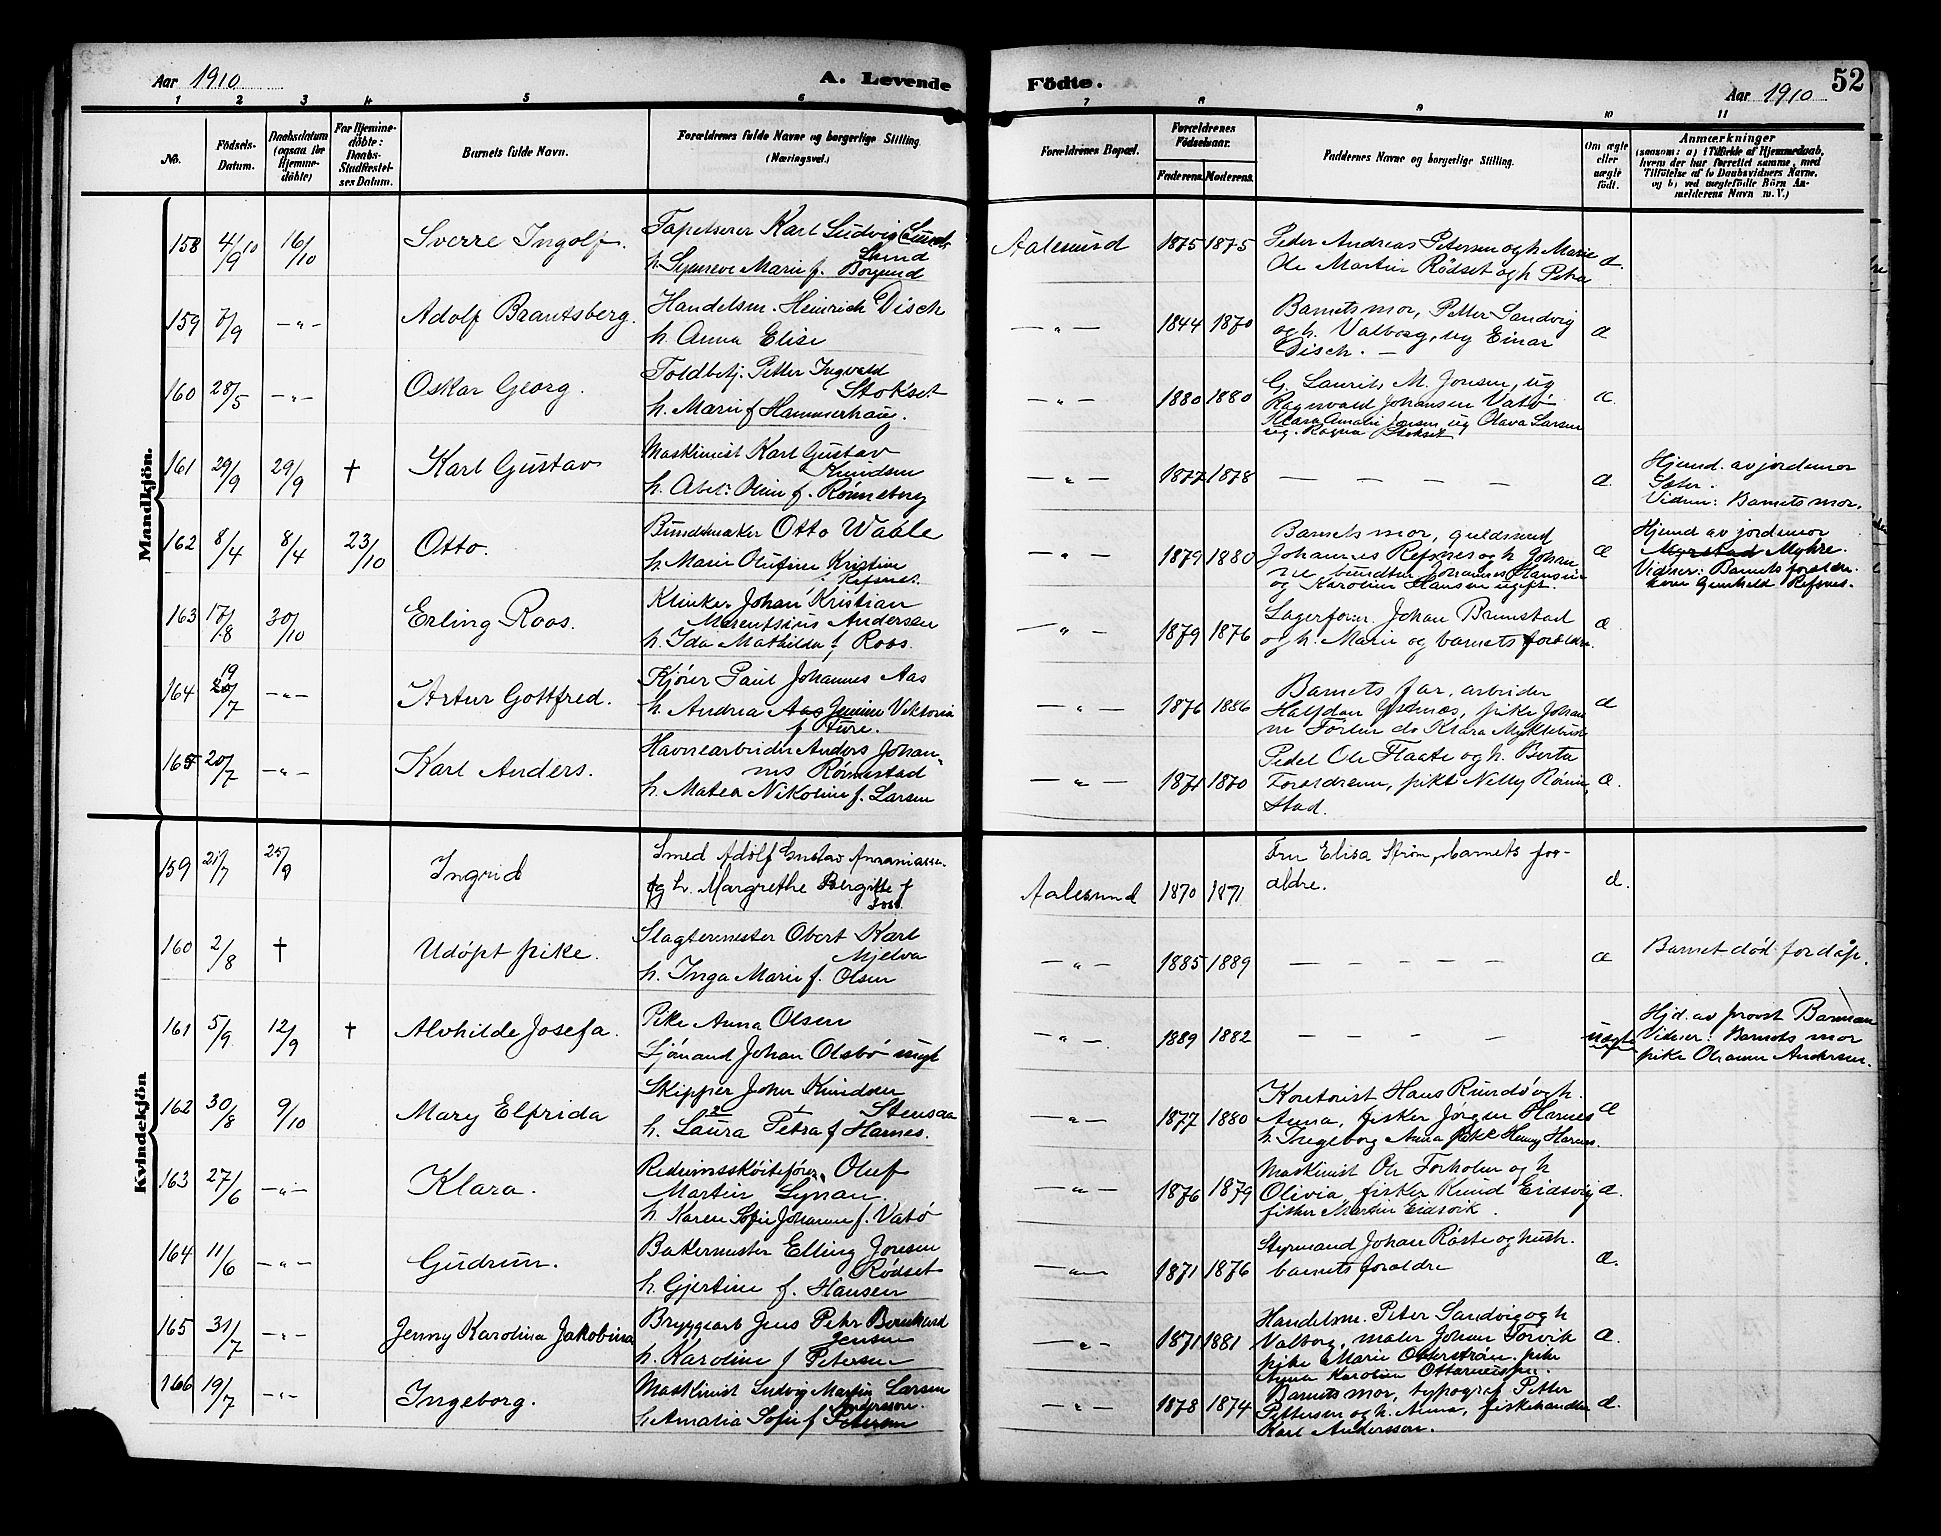 Aar 1910
A. Levende
Födte.
Aar 1910
52
1 2 3 4 5 6 7 8 9 10 11
No.
Födsels-
Datum.
Daabsdatum
(ogsaa for
Hjemme-
döbte)
For Hjemme-
döbte:
Daabs-
Stadfæstel-
ses Datum.
Barnets fulde Navn.
Forældrenes fulde Navne og borgerlige Stilling
(Næringsvei.)
Forældrenes Bopæl.
Forældrenes
Födselsaar.
Faderens. Moderens.
Faddernes Navne og borgerlige Stilling.
Om ægte
eller
uægte
født.
Anmærkninger
(saasom: a) i Tilfælde af Hjemmedaab,
hvem der har forrettet samme, med
Tilføielse af to Daabsvidners Navne,
og b) ved uægtefödte Börn An-
melderens Navn m. V.)
Mandkjön.
158 4/9 10 16/10 Sverre Ingolf.
Tapetserer Karl Ludvig
Lund
h. Synneve Marie f. Borgund
Aalesund 1875 1875
Peder Andreas Petersen og h. Marie
Ole Martin Rødset og h. Petra
159 /9 — „ — Adolf Brantsberg.
Handelsm. Heinrich Disch
h. Anna Elise
— „ — 1844 1870
Barnets mor, Petter Sandvig
og h. Valborg, ug Einar
Disch. —
160 28/5 — „ — Oskar Georg.
Toldbetj. Petter Ingvald
Stokset
h. Marie f Hammerhaug.
— „ — 1880 1880
G. Laurits M. Jonsen, ug
Ragnvald Johansen Vatö
Klara Amalie Jonsen ug Olava Larsen
ug. Ragna Stokset
161 29/9 29/9 † Karl Gustav
Maskinist Karl Gustav
Knudsen
h. Abel. Oline f. Rönneberg
— „ — 1877 1878
— — — — —
Hjemd. av jordemor
Sæter.
Vidner: Barnets mor.
162 8/4 8/4 23/10 Otto.
Bundtmaker Otto Waale
h. Marie Olufine Kristine
f. Refsnes.
— „ — 1879 1880
Barnets mor, guldsmed
Johannes Refsnes og h. Johan
ne bundtm Johannes Hansen
og Karoline Hansen ugift.
Hjemd av jordemor
Myrstad Myhre.
Vidner: Barnets foræld-
rene Gunhild Refsnes.
163 17/8 30/10 Erling Roos.
Klinker Johan Kristian
Marentsius Andersen
h. Ida Mathilda f. Roos.
— „ — 1879 1876
Lagerform. Johan Brunstad
og h. Marie og barnets forældre.
164 19 20/7 — „ — Artur Gottfred.
Kjörer Paul Johannes Aas
h. Andrea Aas Jenine Viktoria
f Fure.
— „ — 1876 1886
Barnets far, arbeider
Halfdan, pike Johan
ne do Klara Myklebust
165 20/7 — „ — Karl Anders.
Havnearbeider Anders Johan-
nes Rönnestad
h. Matea Nikoline f. Larsen
— „ — 1871 1870
Pedel Ole Flaate og h. Berta
Forældrene, pike Nelly Rönne
stad.
Kvindekjön
159 21/7 25/9 Ingrid
Smed Adolf Gustav
og h. Margrethe Bergitte f
Aalesund 1870 1871
Fru Elisa Ström, barnets for-
ældre.
160 2/8 † Udöpt pike.
Slagtermester Obert Karl
Mjelva
h. Inga Marie f. Olsen
— „ — 1885 1889
— — — — —
Barnet död for dåp.
161 5/9 12/9 † Alvhilde Josefa.
Pike Anna Olsen
Sjömand Johan Olsbö ungk
— „ — 1889 1882
— — — —
uægte
Hjd. av provst Barman
Vidner: Barnets mor
pike Andersen.
162 30/8 9/10 Mary Elfrida
Skipper John Knudsen
Stensaa
h. Laura Petra f Harnes.
— „ — 1877 1880
Hans Rundö og h.
Anna, fisker Jörgen Harnes
h. Ingeborg Anna pike Henny Harnes.
163 27/6 — „ — Klara.
Redningsskøitefører Oluf
Martin
h. Karen Sofie Johanne f. Vatö
— „ — 1876 1879
Maskinist Ole Forholm og h
Olivia, fisker Knud Eidsvig
fisker Martin Eidsvik.
164 11/6 — „ — Gudrun.
Bakermester Elling Jonsen
Rödset
h. Gjertine f. Hansen
— „ — 1871 1876
Styrmand Johan Röste og hust.
barnets forældre
165 31/7 — „ — Jenny Karolina Jakobina
Bryggearb Jens Peter Bernhard
Jensen
h. Karoline f Petersen
— „ — 1871 1881
Handelsm. Peter Sandvig og h
Valborg, maler Johan Torvik
pike Marie Otterström, pike
Anna Karoline
166 19/7 — „ — Ingeborg.
Maskinist Ludvig Martin Larsen
Andersson.
h. Amalia Sofie f Petersen
1878 1874
Barnets mor, typograf Petter
Pettersen og h. Anna, fiskehandler
Karl Andersson.